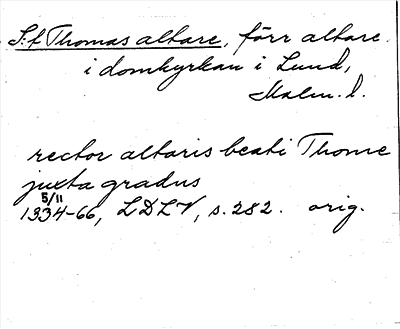 S:t Thomas altare, förr altare
i domkyrkan i Lund,
Malm. l.
rector altaris beati Thome
juxta gradus
5/11
1334-66, LDLV, s. 282. orig.